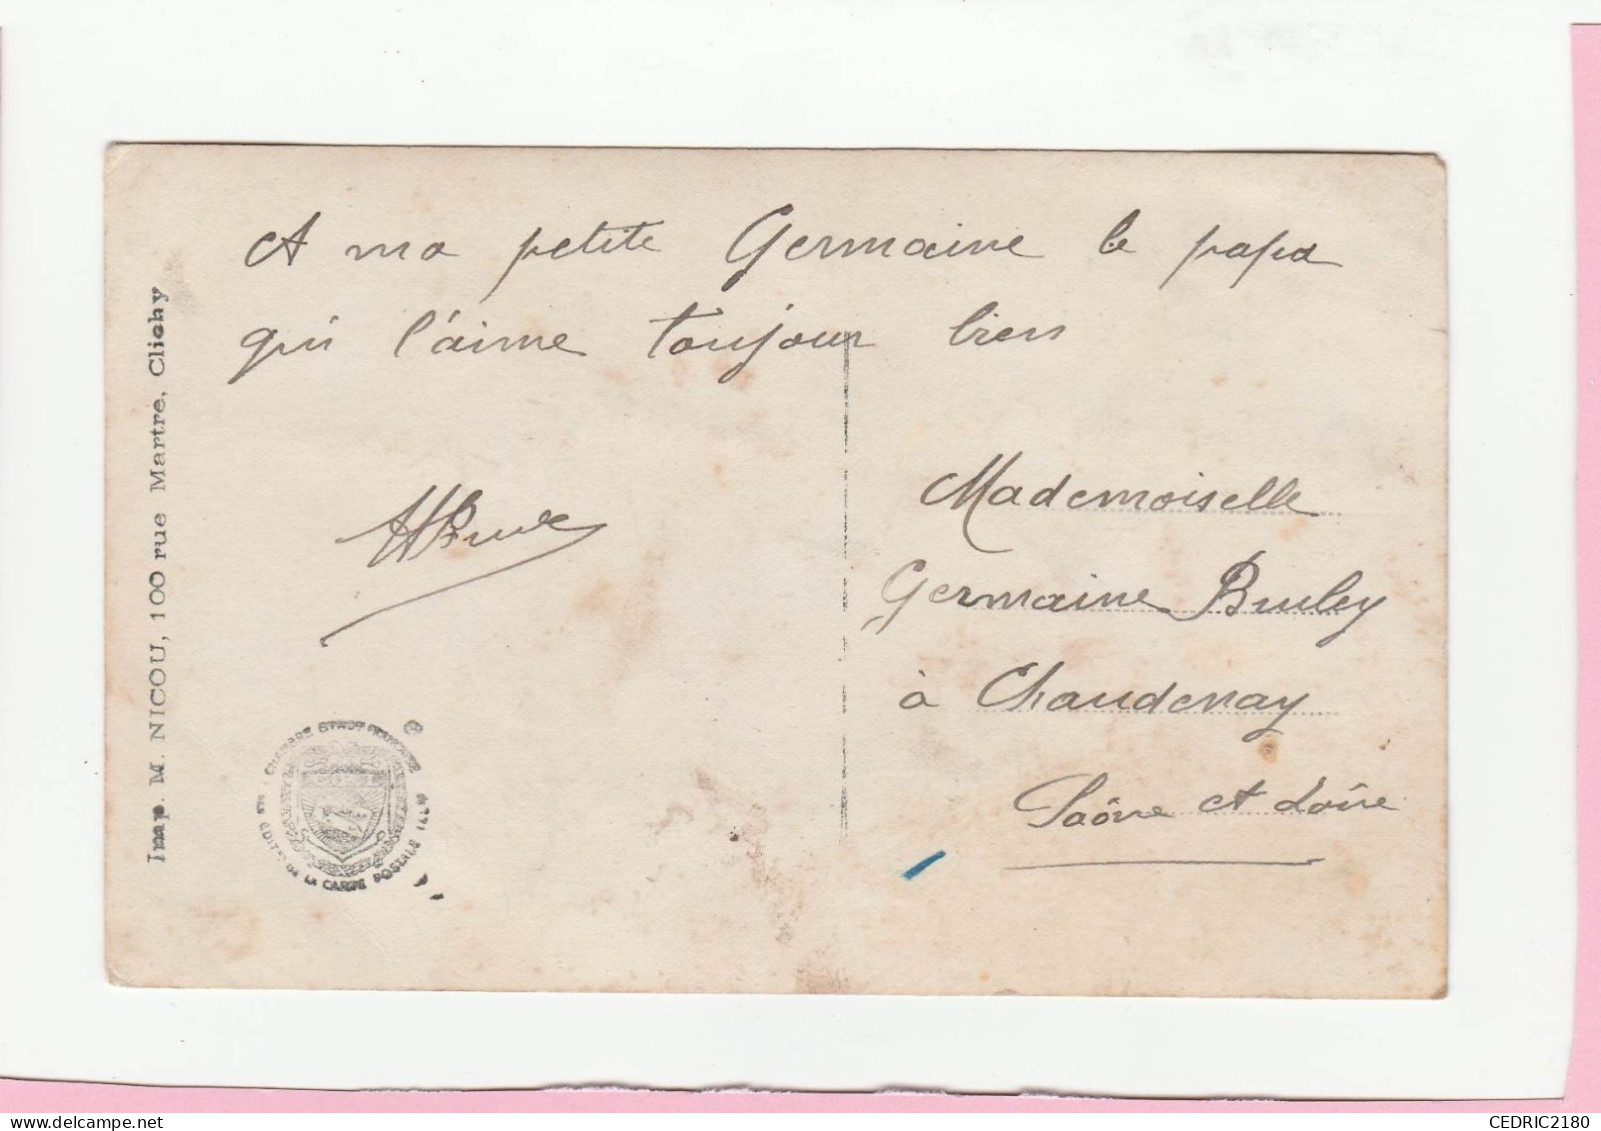 A ma petite Germaine le papa
qui l'aime toujour bien
Mademoiselle
Germaine Bruley
à Chaudenay
Saône et Loire
Imp. M. NICOU, 100 rue Martre, Clichy
CHAMBRE SYND^LE FRANÇAISE
DE LA CARTE POSTALE ILL^ÉE
CEDRIC2180